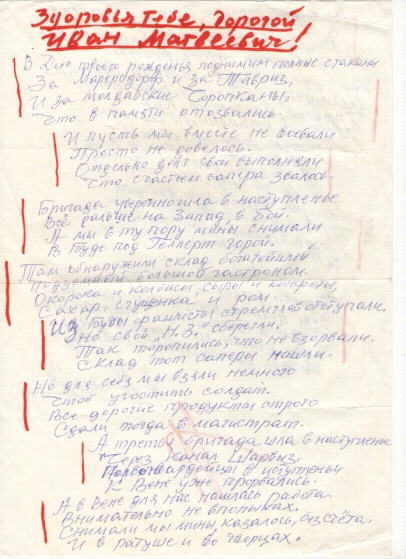 Здоровья Тебе, Дорогой
Иван Матвеевич!
В День твоего рожденья поднимим полные стаканы
За Маренодорф и за Тавриз,
И за молдавские
Что в памяти отозвались.
И пусть мы вместе не воевали
Просто не довелось.
Отдельно долг свой выполняли
Что счастьем сапера звалось.
Бригада уверенно шла в наступленье
Всё дальше на Запад, в бой.
А мы в ту пору мины снимали
В Буде под Геллерт горой.
Там обнаружили склад богатейший
большой гастроном.
Окорока и колбасы сыры и конфеты,
Сахар, сгущенка и ром.
Из Буды фашисты стремглав отступали.
Но свой "Н.З." сберегли.
Так торопились, что не взорвали.
Склад тот саперы нашли.
Но для себя мы взяли немного
Чтоб угостить солдат.
Все дорогие продукты строго
Сдали тогда в магистрат.
А третья бригада шла в наступленье
Через канал Шарвиз,
Первогвардейцы в
К Вене уже прорвались.
А в Вене для нас нашлась работа.
Внимательно не впопыхах.
Снимали мы мины, казалось, без счёта.
И в ратуше и во дворцах.